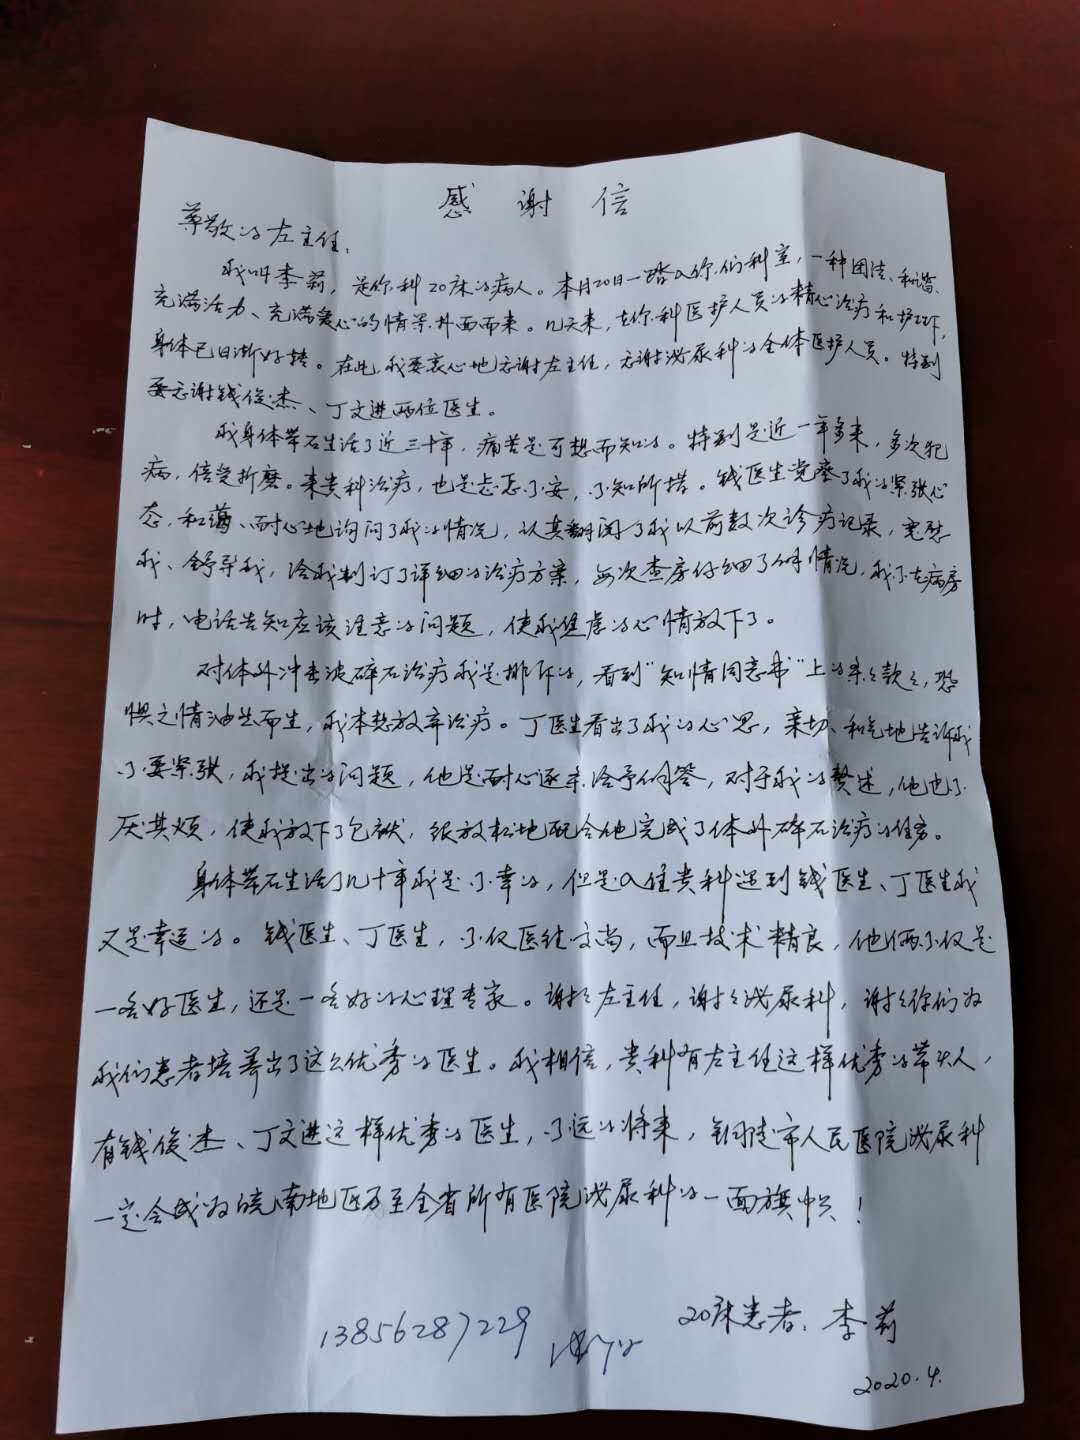 感谢信
尊敬的左主任:
我叫李莉，是你科20床的病人。本月20日一踏入你们科室，一种团结、和谐、
充满活力、充满爱心的情景扑面而来。几天来，在你科医护人员的精心治疗和护理下，
身体已日渐好转。在此，我要衷心地感谢左主任，感谢泌尿科的全体医护人员。特别
要感谢钱俊杰、丁文进两位医生。
我身体带石生活了近三十年，痛苦是可想而知的。特别是近一年多来，多次犯
病，倍受折磨。来贵科治疗，也是忐忑不安，不知所措。钱医生觉察了我的紧张心
态，和蔼、耐心地询问了我的情况，认真翻阅了我以前数次诊疗记录，宽慰
我、舒导我，给我制订了详细的治疗方案，每次查房仔细了解情况，我不在病房
时，电话告知应该注意的问题，使我焦虑的心情放下了。
对体外冲击波碎石治疗我是排斥的，看到“知情同意书”上的条条款款，恐
惧之情油然而生，我本想放弃治疗。丁医生看出了我的心思，亲切、和气地告诉我
不要紧张，我提出的问题，他是耐心逐条给予解答，对于我的赘述，他也不
厌其烦，使我放下了包袱，很放松地配合他完成了体外碎石治疗的任务。
身体带石生活了几十年我是不幸的，但是入住贵科遇到钱医生、丁医生我
又是幸运的。钱医生、丁医生，不仅医德高尚，而且技术精良，他们俩不仅是
一名好医生，还是一名好的心理专家。谢谢左主任，谢谢泌尿科，谢谢你们为
我们患者培养出了这么优秀的医生。我相信，贵科有左主任这样优秀的带头人，
有钱俊杰、丁文进这样优秀的医生，不远的将来，铜陵市人民医院泌尿科
一定会成为皖南地区乃至全省所有医院泌尿科的一面旗帜！
20床患者：李莉
13856287229
2020.4.